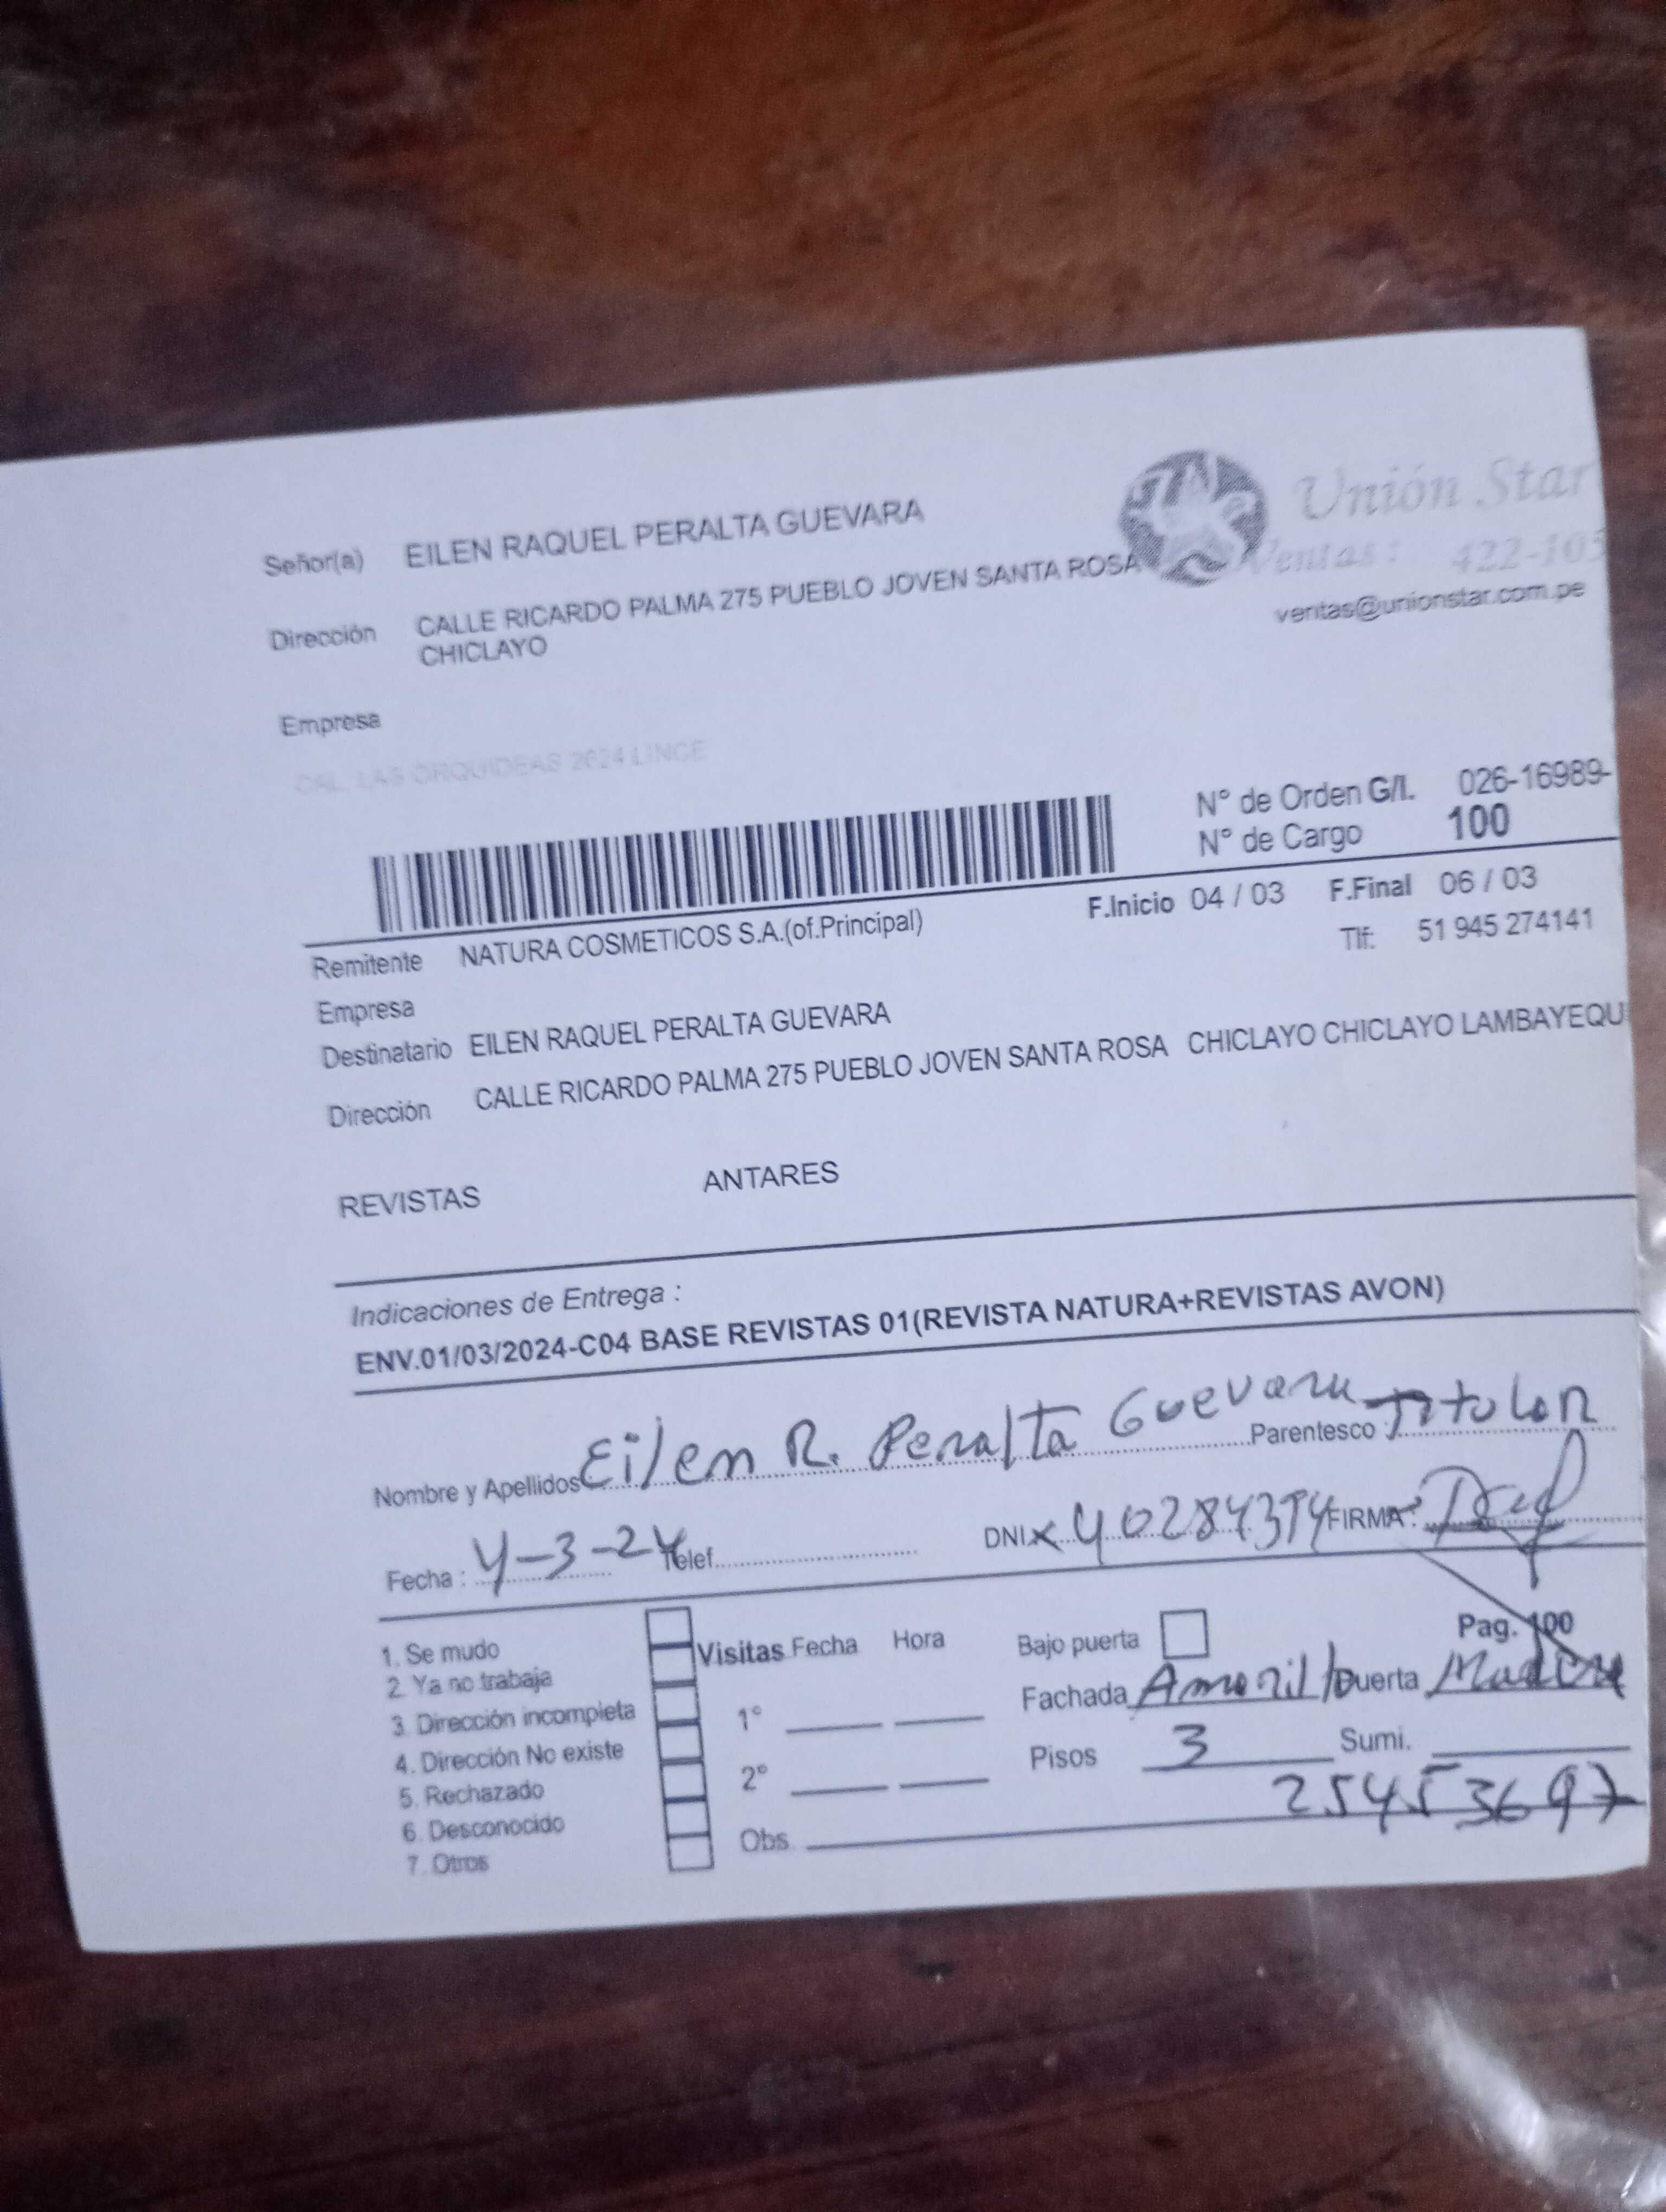 Unión Star
Señor(a) EILEN RAQUEL PERALTA GUEVARA
Ventas: 422-105
Dirección CALLE RICARDO PALMA 275 PUEBLO JOVEN SANTA ROSA
CHICLAYO
ventas@unionstar.com.pe
Empresa
CAL. LAS ORQUIDEAS 2624 LINCE
N° de Orden G/I. 026-16989-
N° de Cargo 100
F.Inicio 04 / 03 F.Final 06 / 03
Remitente NATURA COSMETICOS S.A.(of.Principal)
Tlf: 51 945 274141
Empresa
Destinatario EILEN RAQUEL PERALTA GUEVARA
Dirección CALLE RICARDO PALMA 275 PUEBLO JOVEN SANTA ROSA CHICLAYO CHICLAYO LAMBAYEQU
REVISTAS ANTARES
Indicaciones de Entrega :
ENV.01/03/2024-C04 BASE REVISTAS 01(REVISTA NATURA+REVISTAS AVON)
Nombre y Apellidos Eilen R. Peralta Guevara Parentesco : Titular
Fecha : 4-3-24 Telef. DNI FIRMA :
Pag. 100
1. Se mudo
2. Ya no trabaja
3. Dirección incompleta
4. Dirección No existe
5. Rechazado
6. Desconocido
7. Otros
Visitas Fecha Hora
1°
2°
Obs.
Bajo puerta
Fachada Amarill Puerta
Pisos 3 Sumi.
25453697